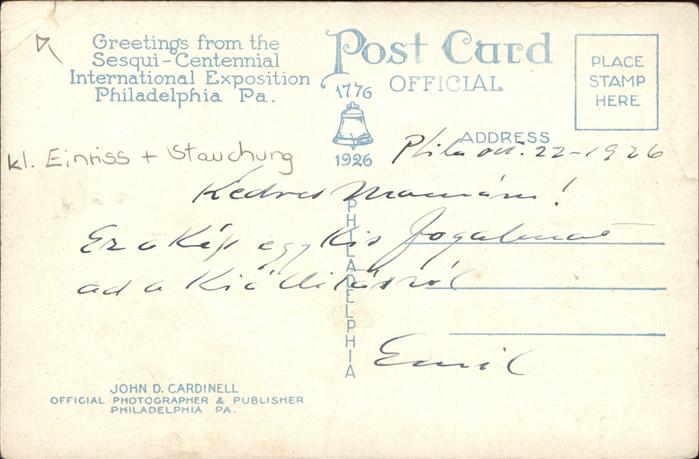 Greetings from the
Sesqui-Centennial
International Exposition
Philadelphia Pa.
Post Card
OFFICIAL
1776
1926
PLACE
STAMP
HERE
ADDRESS
kl. Einriss + Stauchung
Phila oct. 22-1926
Kedves Mamám!
Ez a Kép egy Kis fogalmat
ad a Kiállitásról
Emil
PHILADELPHIA
JOHN D. CARDINELL
OFFICIAL PHOTOGRAPHER & PUBLISHER
PHILADELPHIA PA.